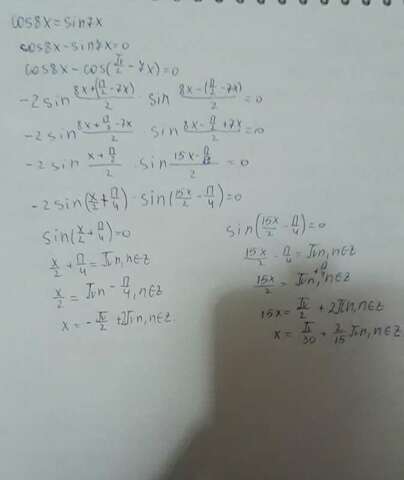 cos8x=sin7x
cos8x-sin7x=0
cos8x-cos(π/2-7x)=0
-2sin (8x+(π/2-7x))/2 · sin (8x-(π/2-7x))/2 =0
-2sin (8x+π/2-7x)/2 sin (8x-π/2+7x)/2 =0
-2sin (x+π/2)/2 · sin (15x-π/2)/2 =0
-2sin(x/2+π/4)·sin(15x/2-π/4)=0
sin(x/2+π/4)=0
x/2+π/4=πn, n∈z
x/2=πn-π/4, n∈z
x=-π/2+2πn, n∈z
sin(15x/2-π/4)=0
15x/2-π/4=πn, n∈z
15x/2=πn+π/4, n∈z
15x=π/2+2πn, n∈z
x=π/30+2/15πn, n∈z